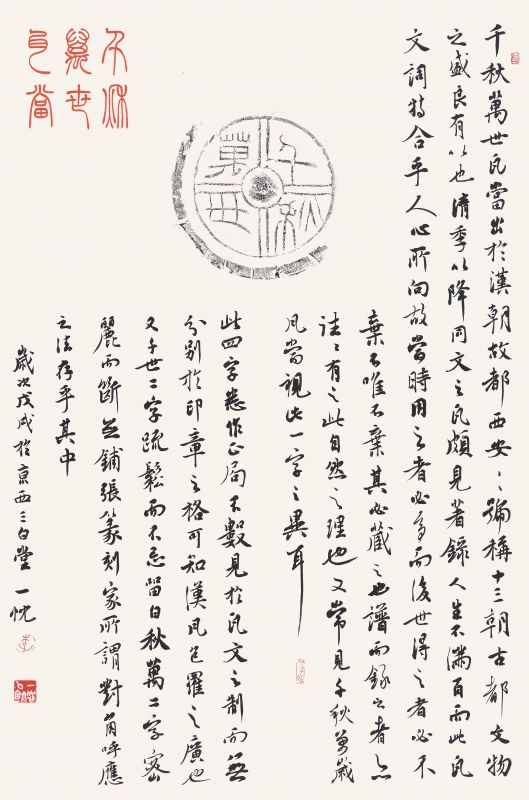 千秋萬世瓦當
千秋萬世
千秋萬世瓦當出於漢朝故都西安々號稱十三朝古都文物
之盛良有以也清季以降同文之瓦頗見著錄人生不滿百而此瓦
文詞特合乎人心所向故當時用之者必多而後世得之者必不
棄不唯不棄其必藏之也譜而錄之者亦
往々有之此自然之理也又常見千秋萬歲
瓦當視此一字之異耳
此四字悉作正局不數見於瓦文之制而無
分別於印章之格可知漢瓦包羅之廣也
又千世二字疏鬆而不忌留白秋萬二字密
麗而斷無鋪張篆刻家所謂對角呼應
之法存乎其中
歲次戊戌於京西三白堂 一忱